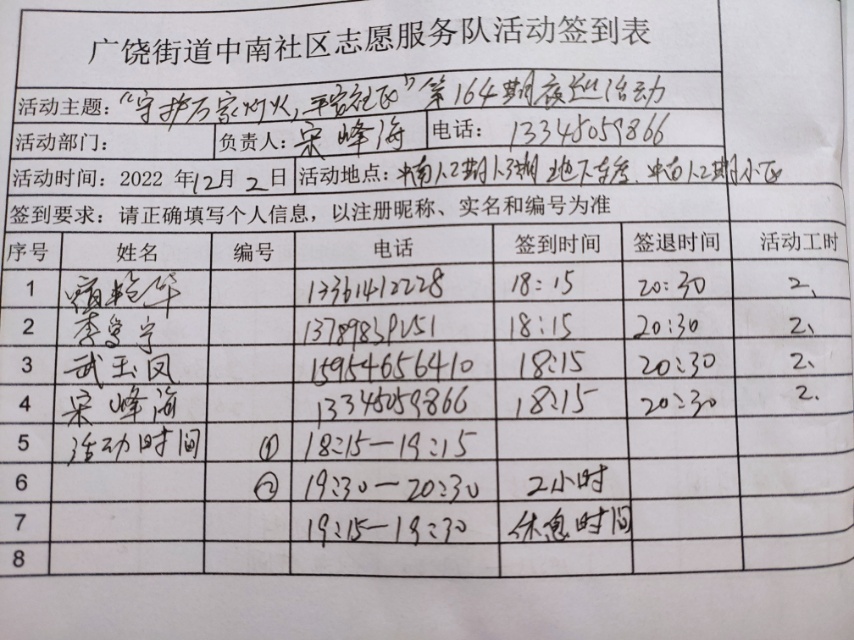 广饶街道中南社区志愿服务队活动签到表
活动主题："守护万家灯火,平安社区"第164期夜巡活动
活动部门： 负责人：宋峰海 电话：13345059866
活动时间：2022 年12月2日 活动地点：中南人2期人3期地下车库、中南人2期小区
签到要求：请正确填写个人信息，以注册昵称、实名和编号为准
序号 姓名 编号 电话 签到时间 签退时间 活动工时
1 13361412228 18:15 20:30 2、
2 李学宇 13789839151 18:15 20:30 2、
3 武玉凤 15954656410 18:15 20:30 2、
4 宋峰海 13345059866 18:15 20:30 2.
5 活动时间 ① 18:15—19:15
6 ② 19:30—20:30 2小时
7 19:15—19:30 休息时间
8